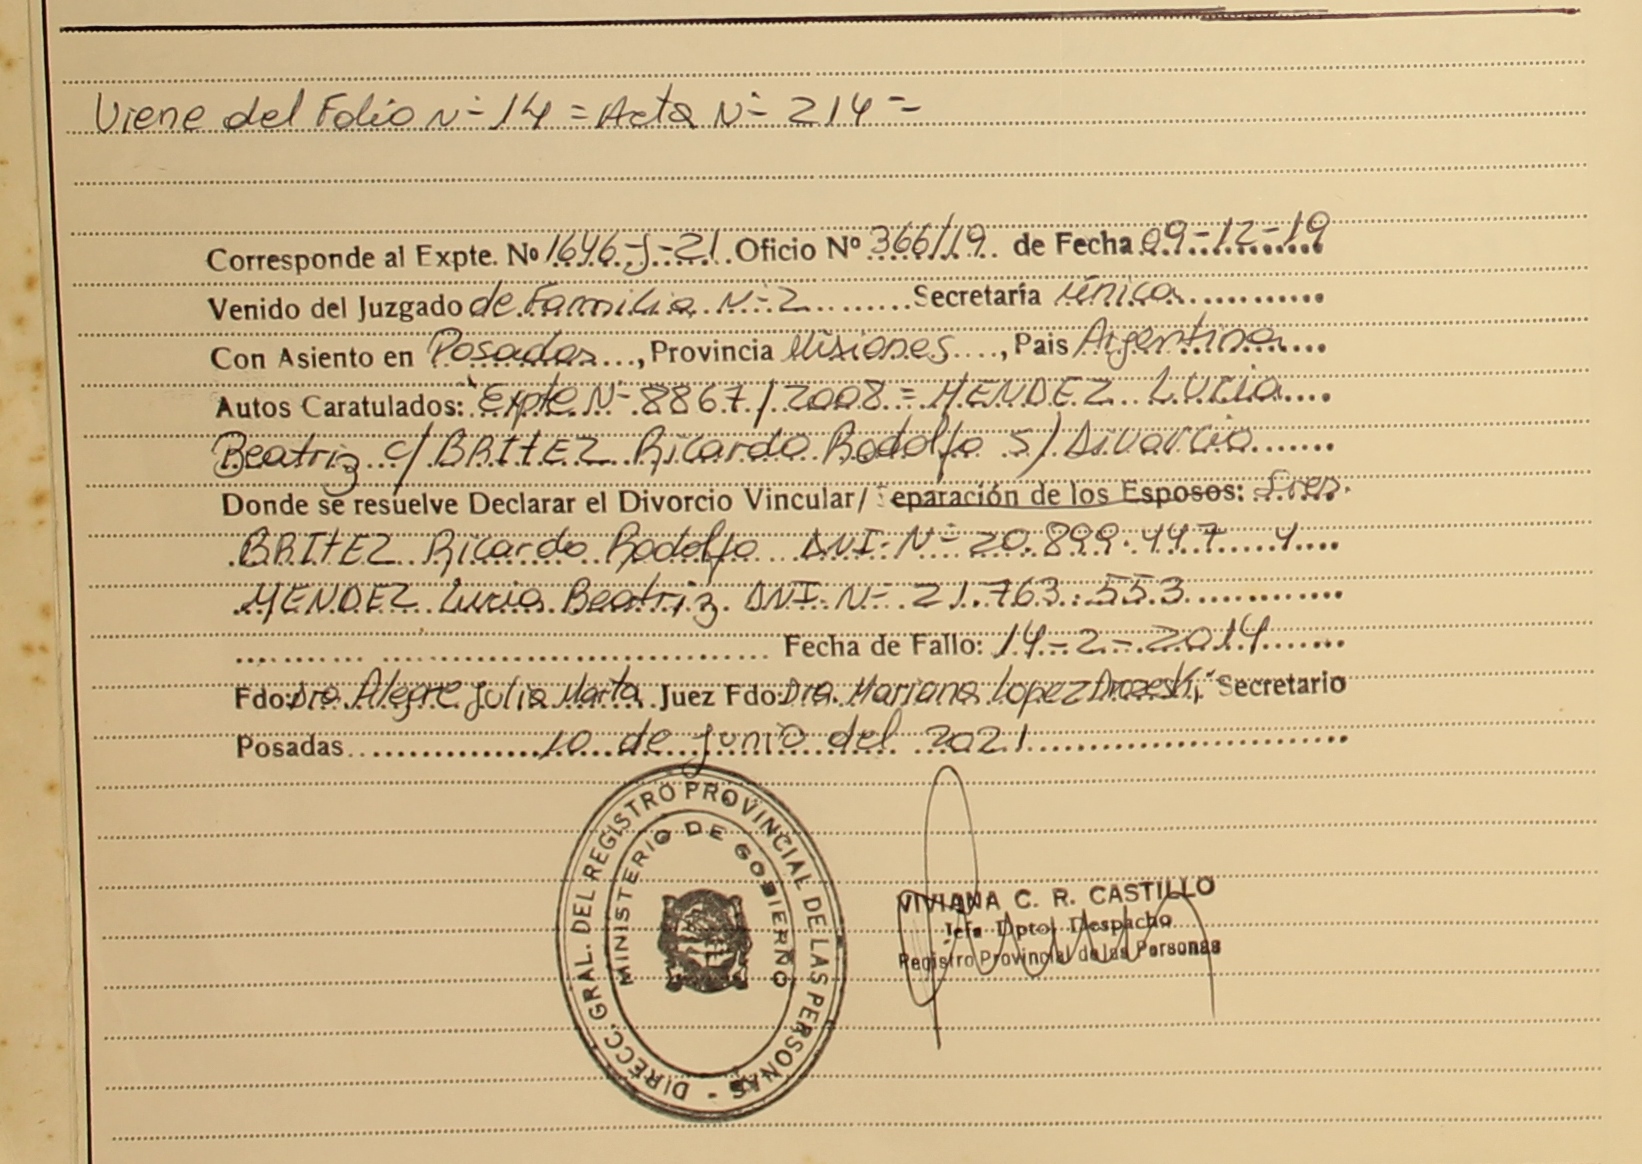 Viene del Folio Nº 14 = Acta Nº 214 =
Corresponde al Expte. Nº 1646-J-21 Oficio Nº 366/19 de Fecha 09-12-19
Venido del Juzgado de Familia Nº 2 Secretaría única
Con Asiento en Posadas, Provincia Misiones, Pais Argentina
Autos Caratulados: "Expte Nº 8867/2008 = MENDEZ Lucia
Beatriz c/ BRITEZ Ricardo Rodolfo s/ Divorcio
Donde se resuelve Declarar el Divorcio Vincular/ Separación de los Esposos: Sres.
BRITEZ Ricardo Rodolfo DNI Nº 20.899.447 y
MENDEZ Lucia Beatriz DNI Nº 21.763.553
Fecha de Fallo: 14-2-2014
Fdo: Dra. Alegre Julia Marta Juez Fdo: Dra. Mariana Lopez Secretario
Posadas 10 de junio del 2021
DIRECC. GRAL. DEL REGISTRO PROVINCIAL DE LAS PERSONAS -
MINISTERIO DE GOBIERNO
VIVIANA C. R. CASTILLO
Jefa Dpto. Despacho
Registro Provincial de las Personas